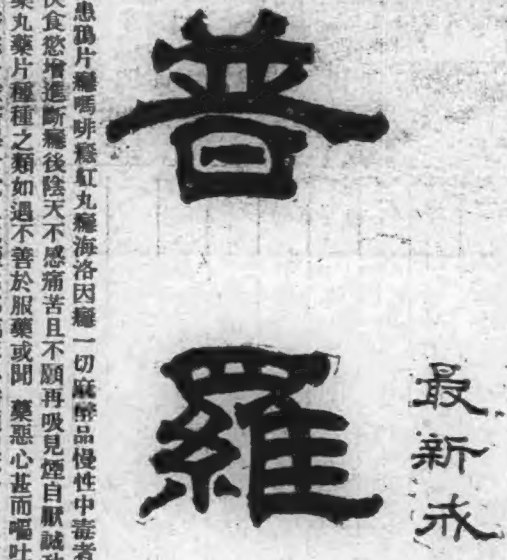 最新戒
普羅
患鴉片癮嗎啡癮紅丸癮海洛因癮一切麻醉品慢性中毒者
食慾增進斷癮後陰天不感痛苦且不願再吸見煙自厭誠
藥丸藥片種種之類如遇不善於服藥或聞藥惡心甚而嘔吐